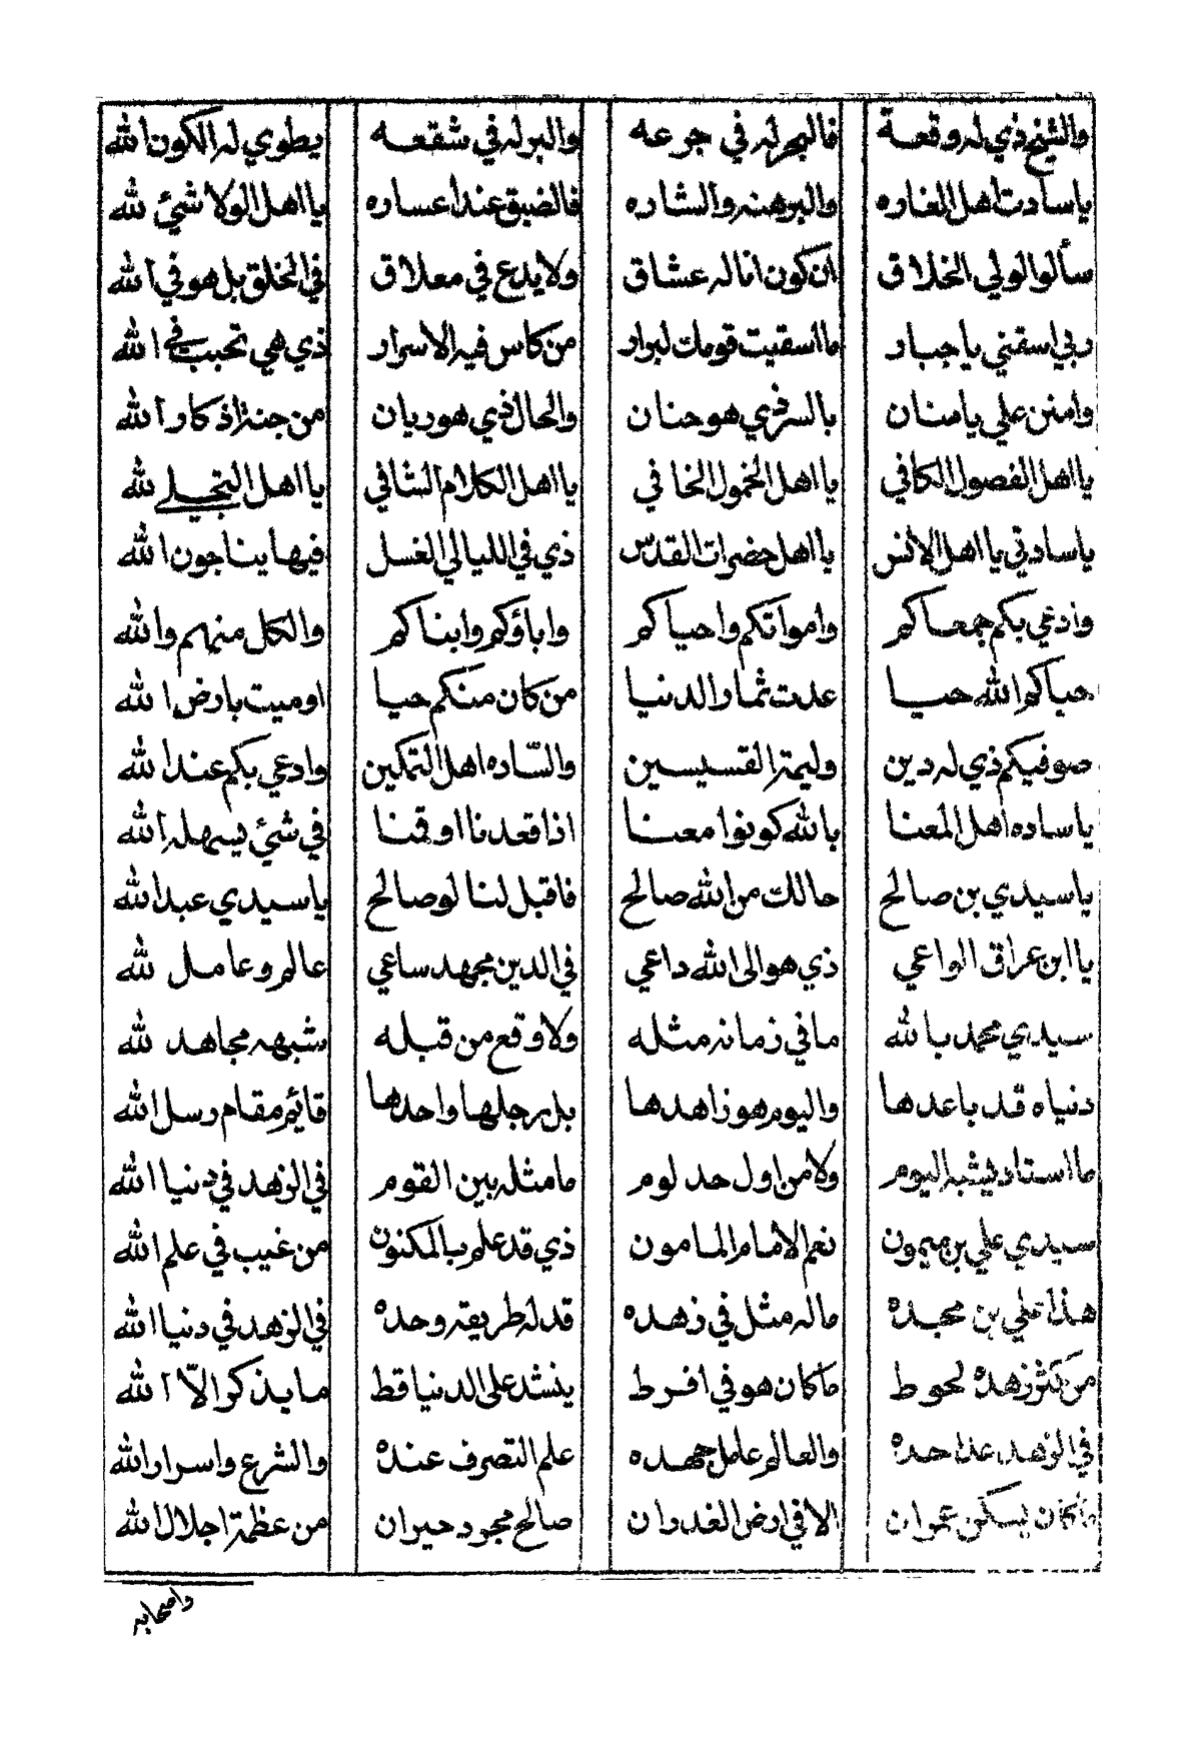 والشيخ ذي له وقعة فالبحر له في جرعه والبر له في شقعه يطوي له الكون الله
ياسادت اهل الغاره والبرهنه والشاره فالضيق عند اعساره يا اهل الولا شئ لله
سألوا لولي الخلاق ان كون انا له عشاق ولا يدع في معلاق في الخلق بل هو في الله
ربي اسقني يا جبار ما اسقيت قومك لبرار من كاس فيه الاسرار ذي هي تحبب في الله
وامنن علي يا منان بالسر ذي هو حنان والحال ذي هو ريان من جنة اذكار الله
يا اهل الفصول الكافي يا اهل الخمول الخافي يا اهل الكلام الشافي يا اهل التجلي لله
ياسادتي يا اهل الانس يا اهل حضرات القدس ذي في الليالي الغسل فيها يناجون الله
وادعي بكم جمعاكم وامواتكم واحياكم واباؤكم وابناكم والكل منهم والله
حياكم الله حيا عدت ثمار الدنيا من كان منكم حيا او ميت بارض الله
صوفيكم ذي له دين وليمة القسيسين والسّاده اهل التمكين وادعي بكم عند الله
ياساده اهل المعنا بالله كونوا معنا اذا قعدنا او قمنا في شئ يسهله الله
ياسيدي بن صالح حالك من الله صالح فاقبل لنا لو صالح ياسيدي عبد الله
يا ابن عراق الواعي ذي هو الى الله داعي في الدين مجهد ساعي عالم وعامل لله
سيدي محمد بالله ما في زمانه مثله ولا وقع من قبله شبهه مجاهد لله
دنياه قد باعدها واليوم هو زاهدها بل برجلها واحدها قايم مقام رسل الله
ما استاد يشبه اليوم ولا من اول حد لوم ما مثله بين القوم في الزهد في دنيا الله
سيدي علي بن ميمون نعم الامام المامون ذي قد علم بالمكنون من غيب في علم الله
هذا علي بن محمده ما له مثل في زهده قد له طريقه وحده في الزهد في دنيا الله
من كثر زهده لحوط ما كان هو في افرط ينشد على الدنيا قط ما يذكر الاّ الله
في الزهد عدا حده والعالم عامل جهده علم التصرف عنده والشرع واسرار الله
ما كان يسكن عمران الا في ارض الغدران صالح مجود حيران من عظمة اجلال الله
واصحابه